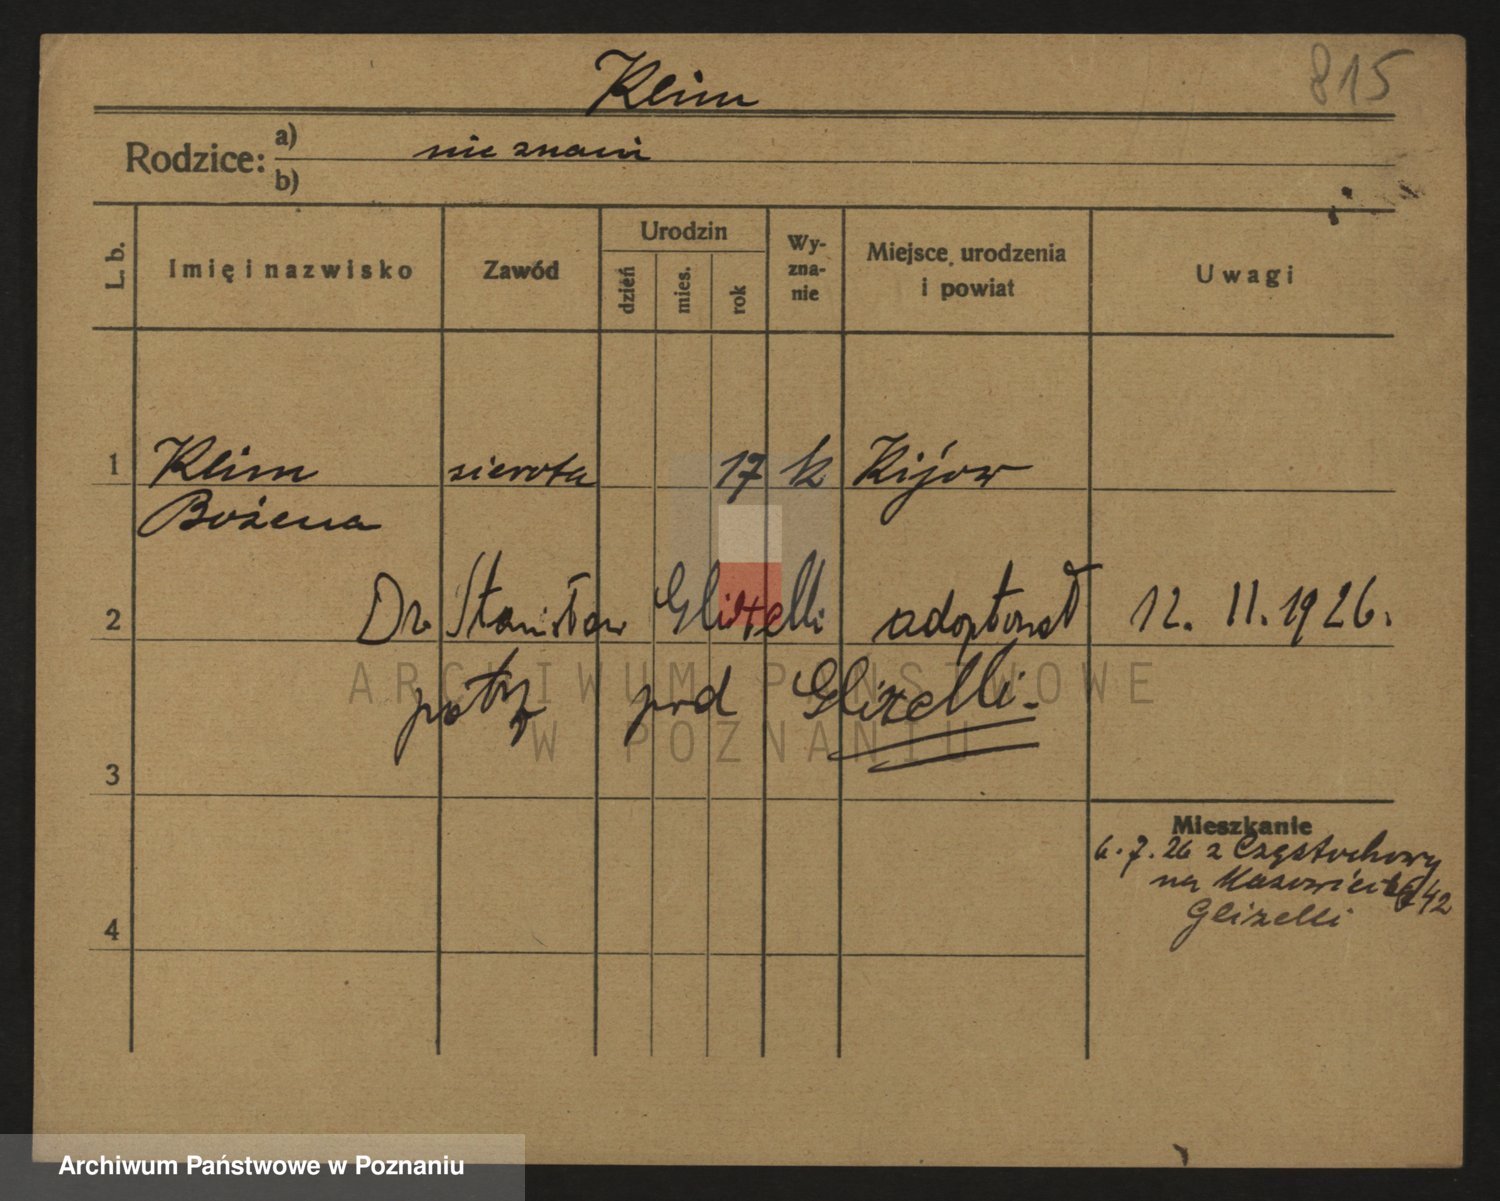 Klim
815
Rodzice: a) nie znani
b)
L. b. Imię i nazwisko Zawód Urodzin dzień mies. rok Wy-zna-nie Miejsce urodzenia i powiat Uwagi
1 Klim sierota 17 k Kijow
Bożena
2 Dr. Stanisław Glizelli adoptował 12. II. 1926.
patrz pod Glizelli.
3
Mieszkanie
6.7.26 z Częstochowy
na 42
Glizelli
4
ARCHIWUM PAŃSTWOWE
W POZNANIU
Archiwum Państwowe w Poznaniu